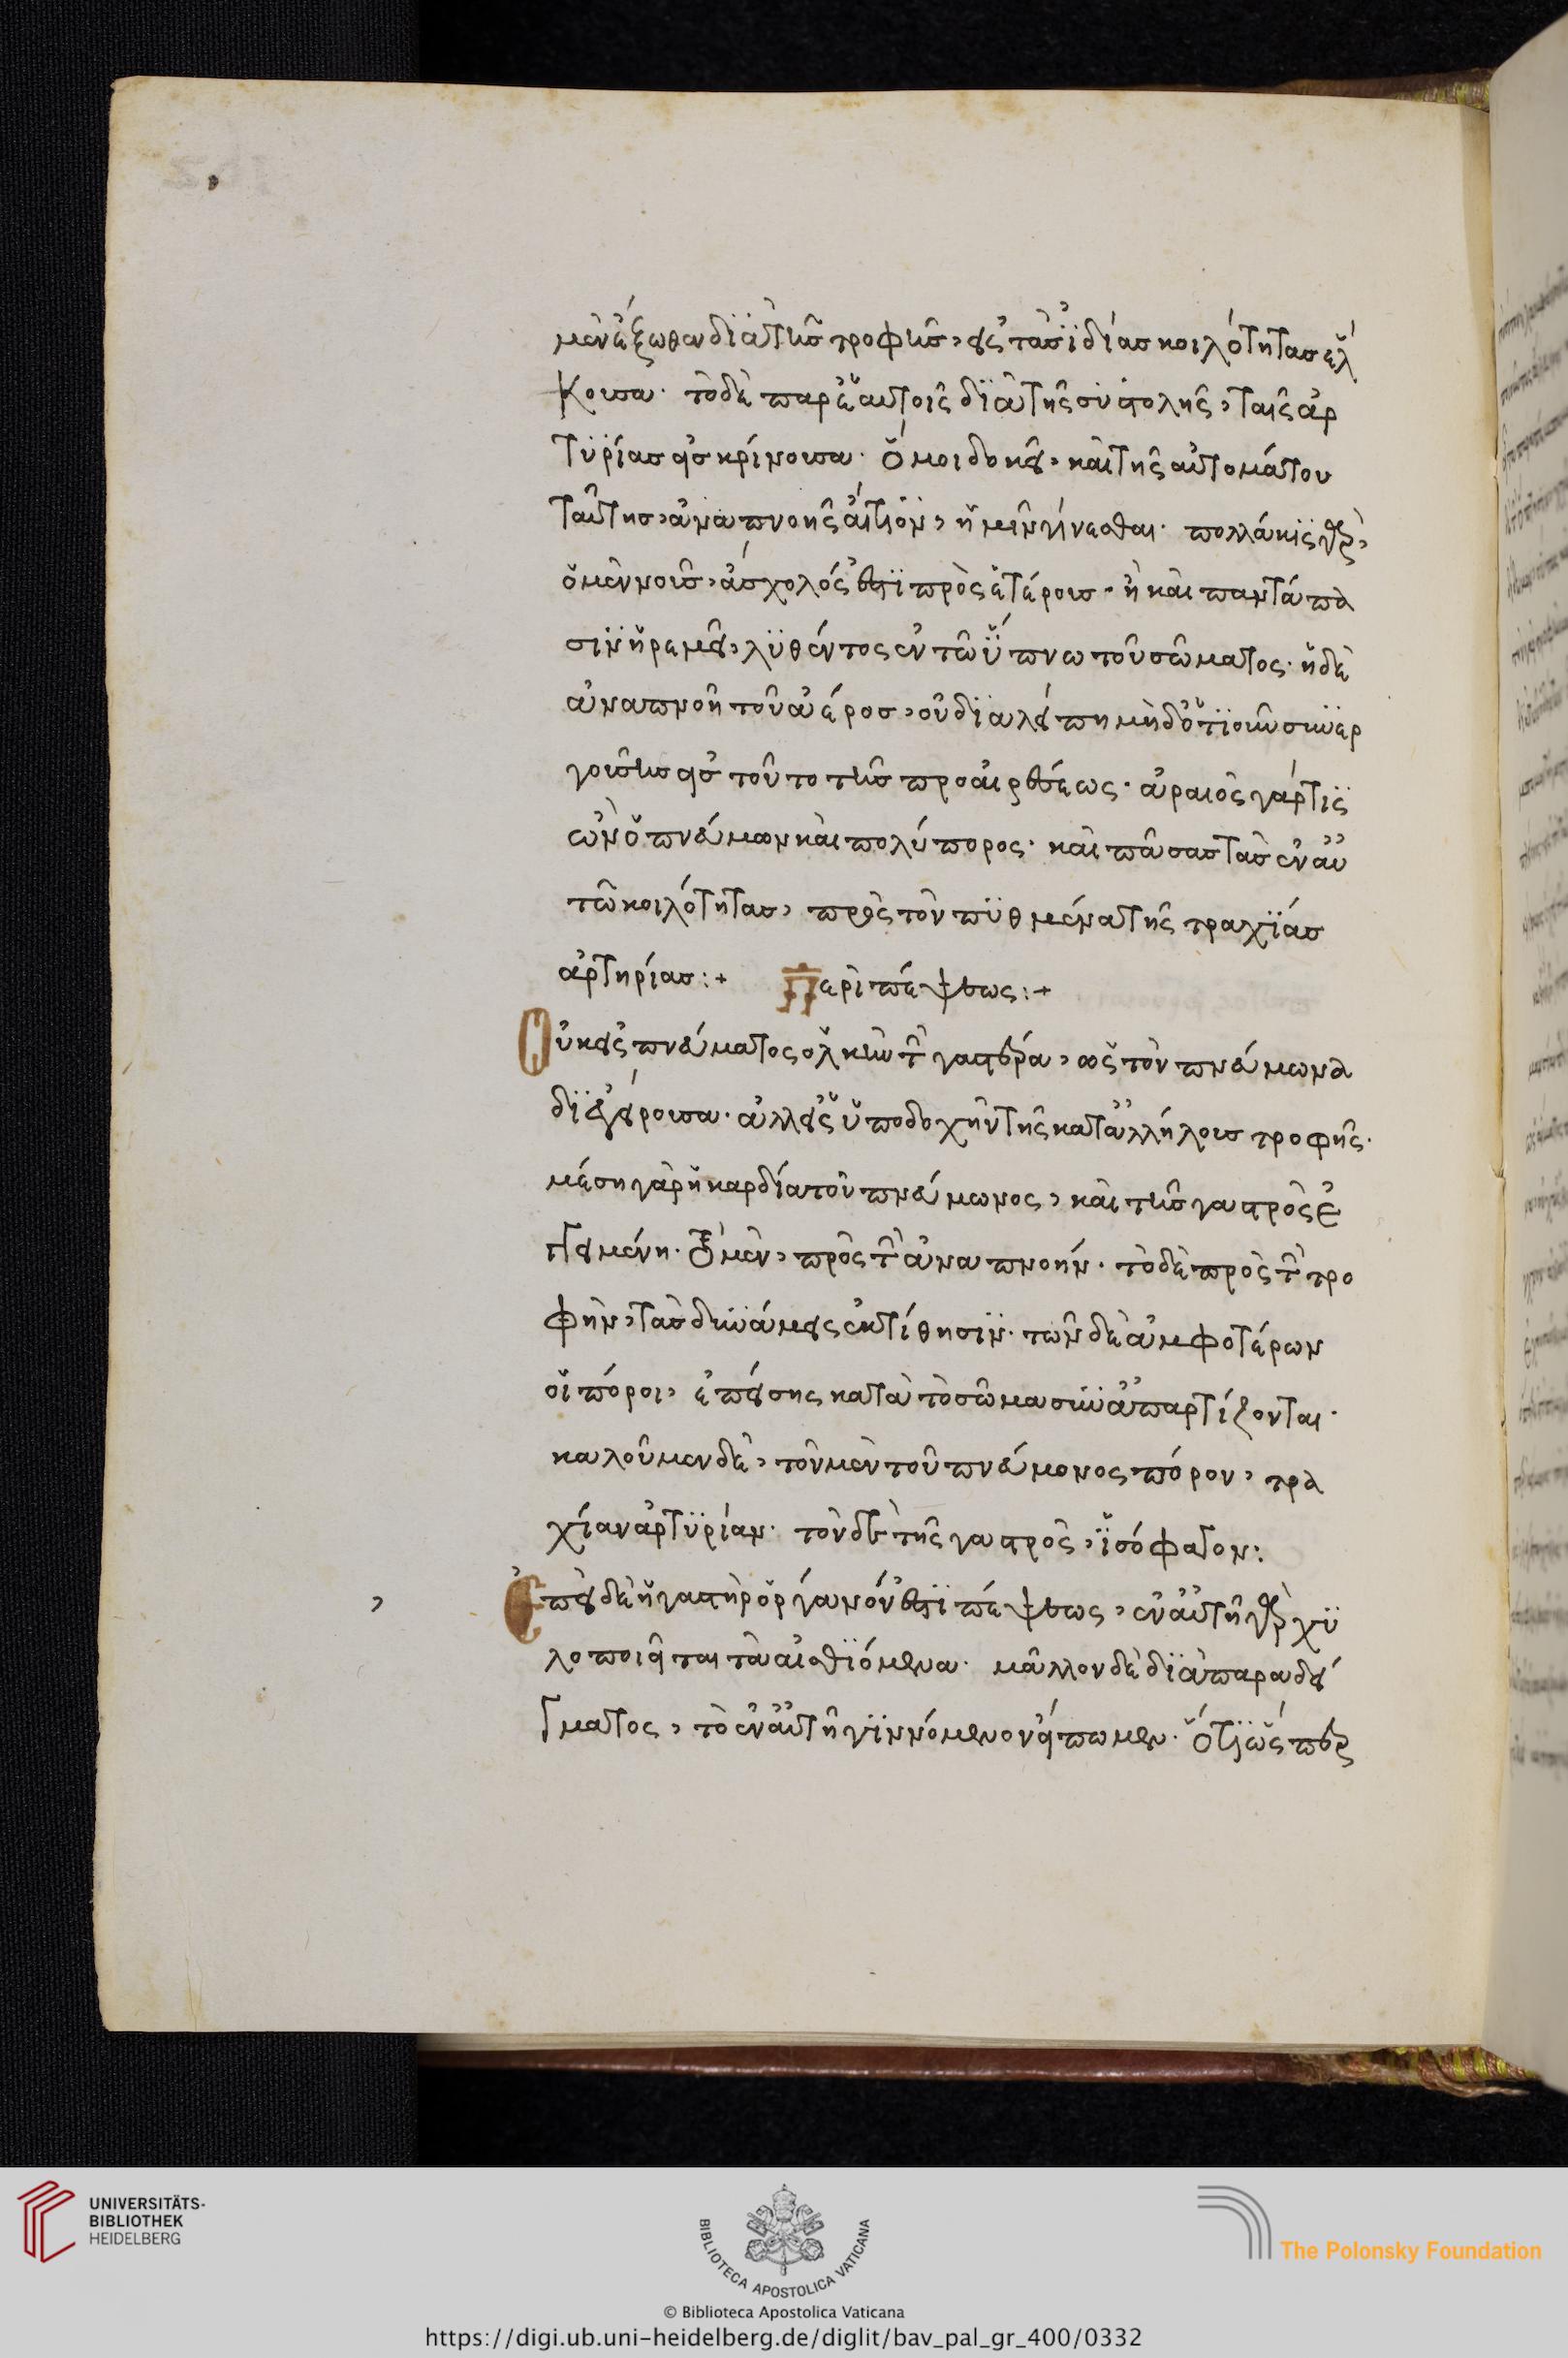 μὲν ἔξωθεν διὰ τῆς τροφῆς, εἰς τὰς ἰδίας κοιλότητας ἕλ
κουσα· τὸ δὲ παρ ἑαυτοῖς διὰ τῆς συστολῆς, ταῖς ἀρ
τυρίας εἰσκρίνουσα· ὅ μοι δοκεῖ, καὶ τῆς αὐτομάτου
ταύτης, ἀναπνοῆς αἴτιον, ἡμῖν γίνεσθαι· πολλάκις γὰρ,
ὁ μὲν νοῦς, ἄσχολός ἐστι πρὸς ἑτέροις· ἢ καὶ παντάπα
σιν ἠρεμεῖ, λυθέντος ἐν τῶ ὕπνω τοῦ σώματος· ἡ δὲ
ἀναπνοὴ τοῦ ἀέρος, οὐ διαλείπη μηδοτιοῦν συνερ
γούσης εἰς τοῦτο τῆς προαιρέσεως· ἀραιὸς γάρ τις
ὢν ὁ πνεύμων καὶ πολύπορος· καὶ πάσας τὰς ἐν αὐ
τῶ κοιλότητας, πρὸς τὸν πυθμένα τῆς τραχίας
ἀρτηρίας:+ Περὶ πέψεως:+
Οὐκ εἰς πνεύματος ὁλκὴν τὴν γαστέρα, ὡς τὸν πνεύμωνα
διαφέρουσα· ἀλλ εἰς ὑποδοχὴν τῆς καταλλήλους τροφῆς·
μέση γὰρ ἡ καρδία τοῦ πνεύμωνος, καὶ τῆς γαστρὸς ἐ
κειμένη· τὸ μὲν, πρὸς τὴν ἀναπνοήν· τὸ δὲ πρὸς τὴν τρο
φὴν, τὰς δυνάμεις ἐντίθησιν· τῶν δὲ ἀμφοτέρων
οἱ πόροι, ἐπείσης κατὰ τὸ σῶμα συναπαρτίζονται·
καλοῦμεν δὲ, τὸν μὲν τοῦ πνεύμονος πόρον, τρα
χίαν ἀρτυρίαν· τὸν δὲ τῆς γαστρὸς, ἰσόφαγον:
Ἐπεὶ δὲ ἡ γαστὴρ ὄργανόν ἐστι πέψεως, ἐν αὐτῆ γὰρ χυ
λοποιεῖται τὰ αἰσθιόμενα· μᾶλλον δὲ διὰ παραδεί
γματος, τὸ ἐν αὐτῆ γιννόμενον εἴπωμεν· ὅτι ὥσπερ
UNIVERSITÄTS-
BIBLIOTHEK
HEIDELBERG
BIBLIOTECA APOSTOLICA VATICANA
The Polonsky Foundation
© Biblioteca Apostolica Vaticana
https://digi.ub.uni-heidelberg.de/diglit/bav_pal_gr_400/0332